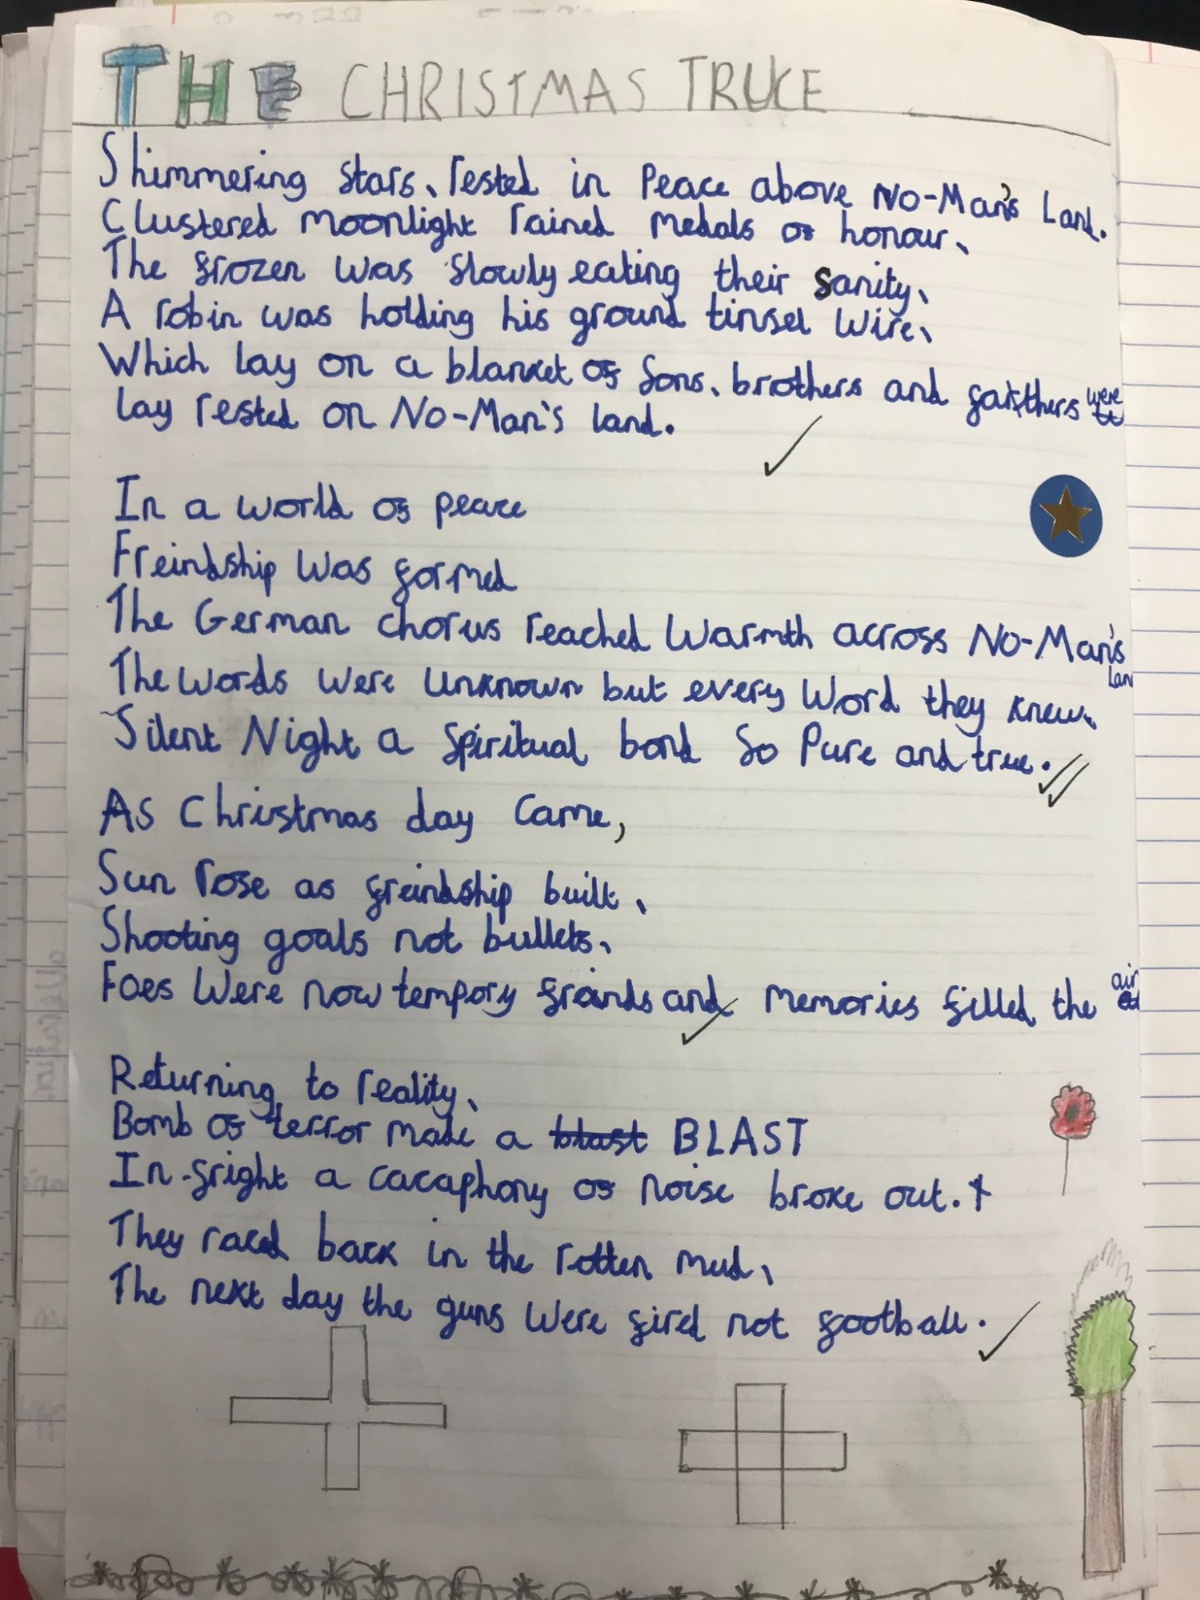 THE CHRISTMAS TRUCE
Shimmering stars, rested in Peace above No-Man's Land.
Clustered moonlight rained medals of honour,
The frozen was slowly eating their sanity,
A robin was holding his ground tinsel wire,
Which lay on a blanket of sons, brothers and fathers were
lay rested on No-Man's land.
In a world of peace
Freindship was formed
The German chorus reached Warmth across No-Man's
Lan
The words were unknown but every word they knew,
Silent Night a spiritual bond so Pure and true.
As Christmas day came,
Sun rose as freindship built,
Shooting goals not bullets,
Foes were now tempory freinds and memories filled the air
Returning to reality,
Bomb of terror made a blast BLAST
In fright a cacaphony of noise broke out.
They raced back in the rotten mud,
The next day the guns were fired not football.